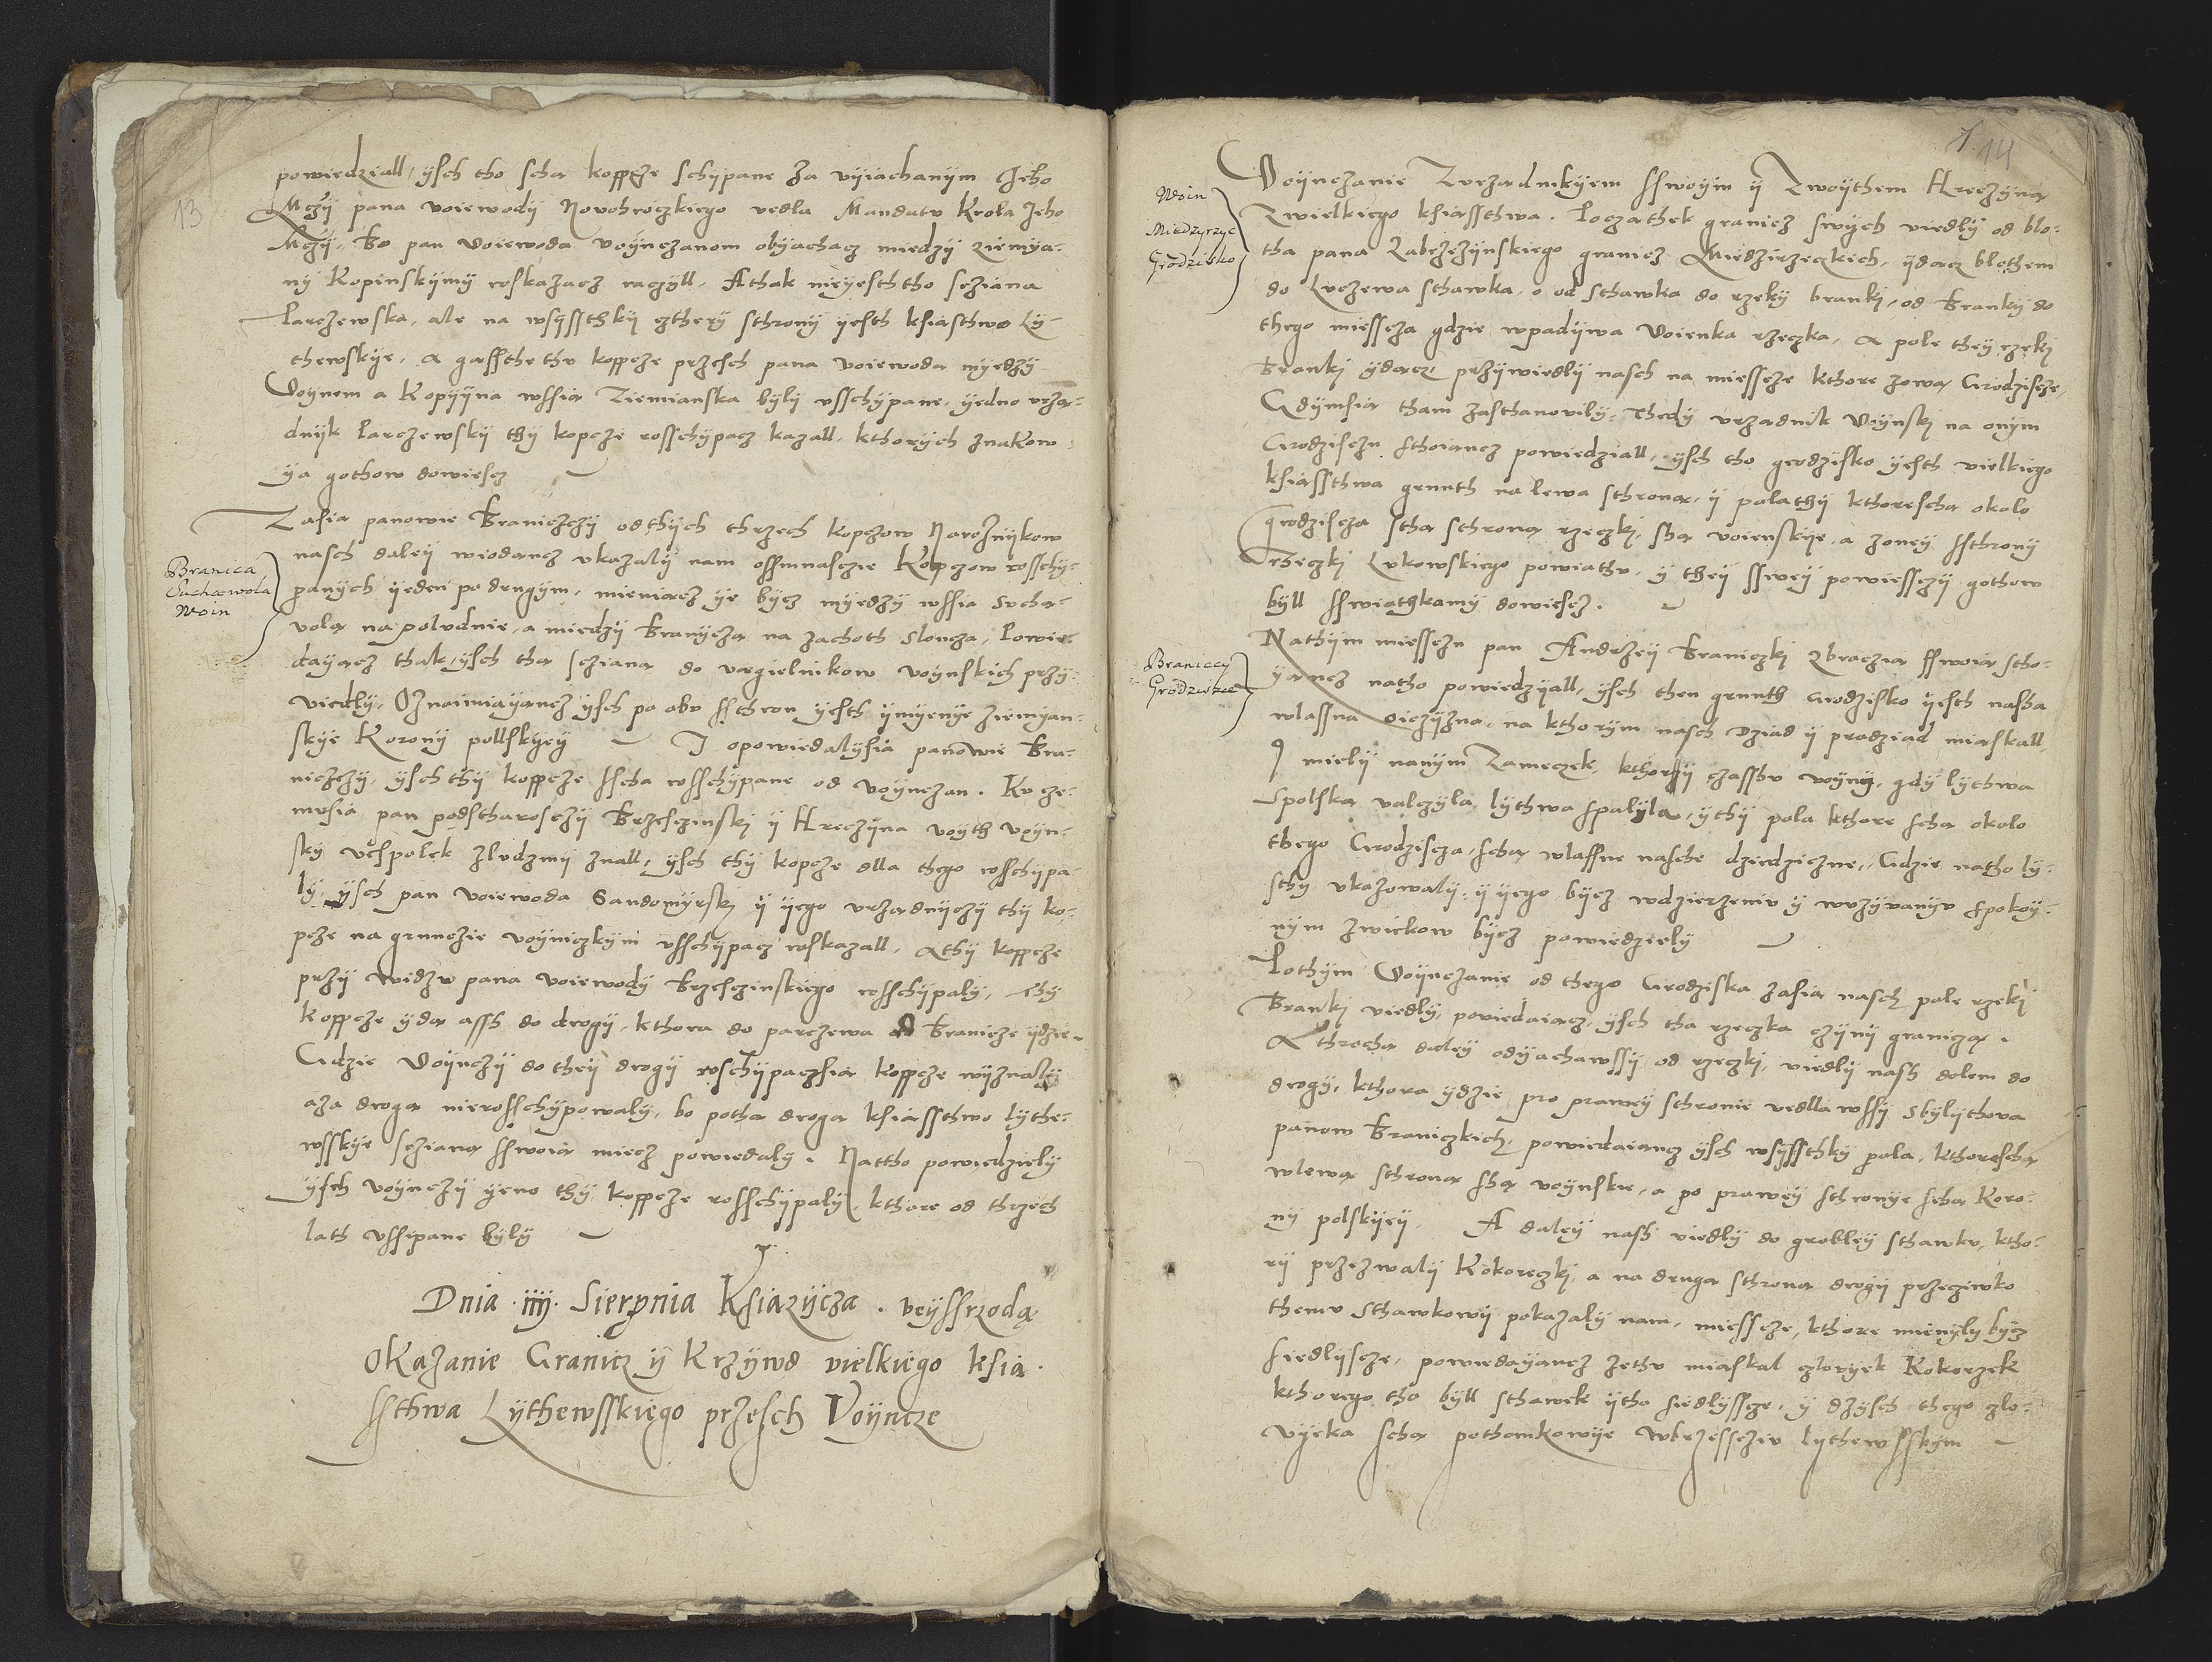 13
powiedziall, ysch tho scha koppcze schypane za vyiachanym Jeho
Mczy pana voiewody Novohroczkiego vedla Mandatv Krola Jeho
Mczy. Bo pan Voiewoda voynczanom obyachacz miedzy ziemya-
ny Kopinskymy roskazacz raczyll. Athak nieyesth tho scziana
Parczewska, ale na wsyssthky czthery sthrony yesth ksiasthwo Ly-
thewskye. a gassthe thv koppcze przesch pana voiewoda myedzy
Voynom a Kopyyna wssia Ziemianska byly vsschypane, yedno vrza-
dnyk Parczewsky thy kopcze rosschypacz kazall, kthorych znakow
ya gothow dowiescz
Branica
Suchawola
Woin
Zasia panowie Braniczczy odthych thrzech kopczow Naroznykow
nasch daley wiodancz vkazaly nam ossmnasczie Kopczow rosschy-
panych yeden po drugym, mieniacz ye bycz myedzy wssia Sucha-
vola na polvdnie, a miedzy Branycza na zachoth sloncza, Powie-
dayacz thak, ysch tha scziana do vargielnikow voynskich przy-
viedly, Oznaimiayancz ysch po obv ssthron yesth ymyenye ziemyan-
skye Korony pollskyey I opowiedalysia panowie Bra-
niczczy, ysch thy koppcze sscha rosschypane od voynczan. Kv cze-
mvsia pan podstharosczy Brzesczinsky y Hreczyna voyth voyn-
sky vespolek zlvdzmy znall, ysch thy kopcze dlla thego rosschypa-
ly, ysch pan voiewoda Sandomyrsky y yego vrzadnyczy thy ko-
pcze na grunczie voyniczkym vsschypacz roskazall, Athy koppcze
przy widzv pana voiewody Brzesczinskiego rosschypaly, Thy
koppcze yda assh do drogy, kthora do parczewa od Branicze ydzie.
Gdzie Voynczy do they drogy rosschypaczsia koppcze wyznaly
aza droga nierosschypowaly, bo potha droga ksiassthwo lythe-
wsskye scziana sswoia miecz powiedaly. Nattho powiedziely
ysch voynczy yeno thy koppcze rosschypaly, kthore od thrzech
lath vssipane byly
Dnia .iiij. Sierpnia Ksiazycza . veyssrzoda
Okazanie Granicz y Krzywd vielkiego ksia-
ssthwa Lythewsskiego przesch Voyncze
14
Woin
Miedzyrzyc
Grodzisko
Voynczanie Zvrzadnikyem sswoym y Zwoythem Hreczyna
Zwielkiego ksiassthwa. Poczathek granicz swych viedly od blo-
tha pana Zabrzezynskiego granicz Miedzirzeczkich, ydacz blothem
do Lvczewa sthawka, o od sthawka do rzeky branky, od Branky do
thego miesscza gdzie wpadywa Voienka rzeczka, a pole they rzeky
Branky ydacz, przywiedly nasch na miesscze kthore zowa Grodziscze,
Gdymsia tham zasthanovily, Thedy vrzadnik Voynsky na onym
Grodzisczu sthoiancz powiedziall, ysch tho grodzisko yesth vielkiego
ksiassthwa grunth na lewa sthrona, y pola thy kthorescha okolo
grodziscza stha sthrona rzeczky, sha voienskye, a zoney ssthrony
rzeczky Lvkowskiego powiathv, y they sswey powiessczy gothow
byll sswiathkamy dowiescz.
Braniccy
Grodzisze
Nathym miessczu pan Andrzey Braniczky zbraczia sswoia stho-
yancz natho powiedzyall, ysch then grunth Grodzisko yesth nassa
wlassna oiczyzna, na kthorym nasch dziad y pradziad miaskall,
I miely nanym Zameczek, kthory czassv woyny, gdy lythwa
Spolska valczyla lythwa spalyla, ythy pola kthore scha okolo
thego Grodziscza, scha wlassne nasche dziedziczne, Gdzie natho ly-
sthy vkazowaly, y yego bycz wdzierzeniv y wvzyvanyv spokoy-
nym zwiekow bycz powiedziely
Pothym Voynczanie od thego Grodziska zasia nasch pole rzeky
Branky viedly, powiedaiacz, ysch tha rzeczka czyny granicza.
A throcha daley odyachawssy od rzeczky, viedly nassh dolem do
drogy, kthora ydzie pro prawey sthronie vedlla wssy Sbylythova
panow Braniczkich, powiedaiancz ysch wsyssthky pola, kthorescha
wlewa sthrona sha voynskie, a po prawey sthronye scha Koro-
ny polskyey. A daley nassh viedly do groblley sthawkv, ktho-
ry przezwaly Kokoreczky, a na druga sthrona drogy przecziwko
themv Sthawkowy pokazaly nam, miesscze, kthore mienyly bycz
siedlyscze, powiedayancz zethv miaskal czlovyek Kokorzek
kthorego tho byll sthawek ytho siedlyscze, y dzysch thego czlo-
vyeka scha pothomkowye wbrzessczv lythewsskym